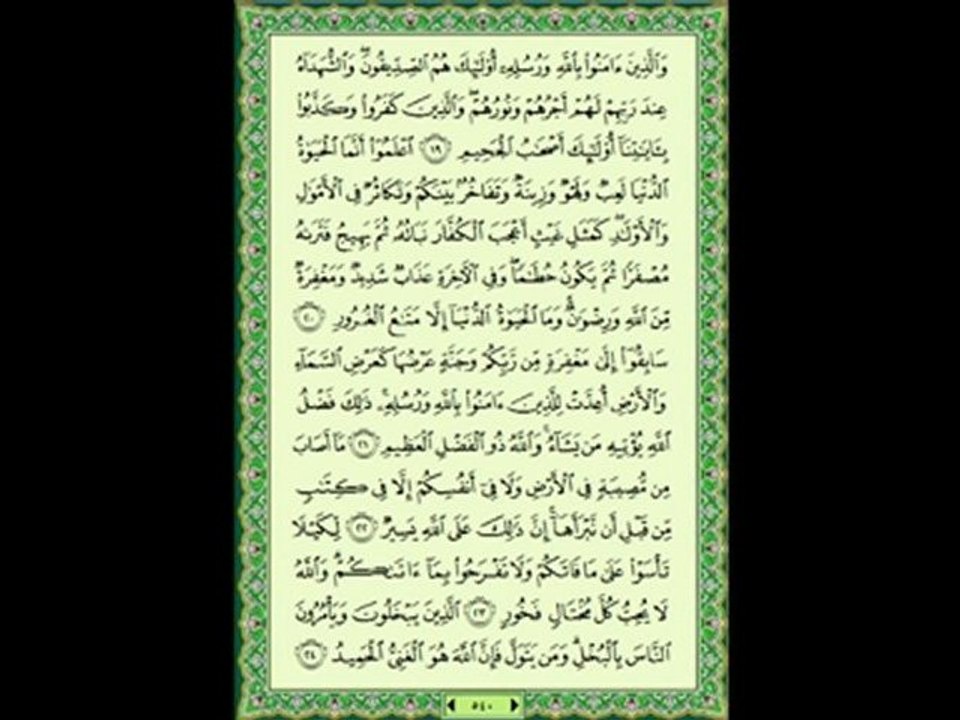 وَٱلَّذِينَ ءَامَنُوا۟ بِٱللَّهِ وَرُسُلِهِۦٓ أُو۟لَـٰٓئِكَ هُمُ ٱلصِّدِّيقُونَ ۖ وَٱلشُّهَدَآءُ
عِندَ رَبِّهِمْ لَهُمْ أَجْرُهُمْ وَنُورُهُمْ ۖ وَٱلَّذِينَ كَفَرُوا۟ وَكَذَّبُوا۟
بِـَٔايَـٰتِنَآ أُو۟لَـٰٓئِكَ أَصْحَـٰبُ ٱلْجَحِيمِ ١٩ ٱعْلَمُوٓا۟ أَنَّمَا ٱلْحَيَوٰةُ
ٱلدُّنْيَا لَعِبٌ وَلَهْوٌ وَزِينَةٌ وَتَفَاخُرٌۢ بَيْنَكُمْ وَتَكَاثُرٌ فِى ٱلْأَمْوَٰلِ
وَٱلْأَوْلَـٰدِ ۖ كَمَثَلِ غَيْثٍ أَعْجَبَ ٱلْكُفَّارَ نَبَاتُهُۥ ثُمَّ يَهِيجُ فَتَرَىٰهُ
مُصْفَرًّا ثُمَّ يَكُونُ حُطَـٰمًا ۖ وَفِى ٱلْـَٔاخِرَةِ عَذَابٌ شَدِيدٌ وَمَغْفِرَةٌ
مِّنَ ٱللَّهِ وَرِضْوَٰنٌ ۚ وَمَا ٱلْحَيَوٰةُ ٱلدُّنْيَآ إِلَّا مَتَـٰعُ ٱلْغُرُورِ ٢٠
سَابِقُوٓا۟ إِلَىٰ مَغْفِرَةٍ مِّن رَّبِّكُمْ وَجَنَّةٍ عَرْضُهَا كَعَرْضِ ٱلسَّمَآءِ
وَٱلْأَرْضِ أُعِدَّتْ لِلَّذِينَ ءَامَنُوا۟ بِٱللَّهِ وَرُسُلِهِۦ ۚ ذَٰلِكَ فَضْلُ
ٱللَّهِ يُؤْتِيهِ مَن يَشَآءُ ۚ وَٱللَّهُ ذُو ٱلْفَضْلِ ٱلْعَظِيمِ ٢١ مَآ أَصَابَ
مِن مُّصِيبَةٍ فِى ٱلْأَرْضِ وَلَا فِىٓ أَنفُسِكُمْ إِلَّا فِى كِتَـٰبٍ
مِّن قَبْلِ أَن نَّبْرَأَهَآ ۚ إِنَّ ذَٰلِكَ عَلَى ٱللَّهِ يَسِيرٌ ٢٢ لِّكَيْلَا
تَأْسَوْا۟ عَلَىٰ مَا فَاتَكُمْ وَلَا تَفْرَحُوا۟ بِمَآ ءَاتَىٰكُمْ ۗ وَٱللَّهُ
لَا يُحِبُّ كُلَّ مُخْتَالٍ فَخُورٍ ٢٣ ٱلَّذِينَ يَبْخَلُونَ وَيَأْمُرُونَ
ٱلنَّاسَ بِٱلْبُخْلِ ۗ وَمَن يَتَوَلَّ فَإِنَّ ٱللَّهَ هُوَ ٱلْغَنِىُّ ٱلْحَمِيدُ ٢٤
٥٤٠